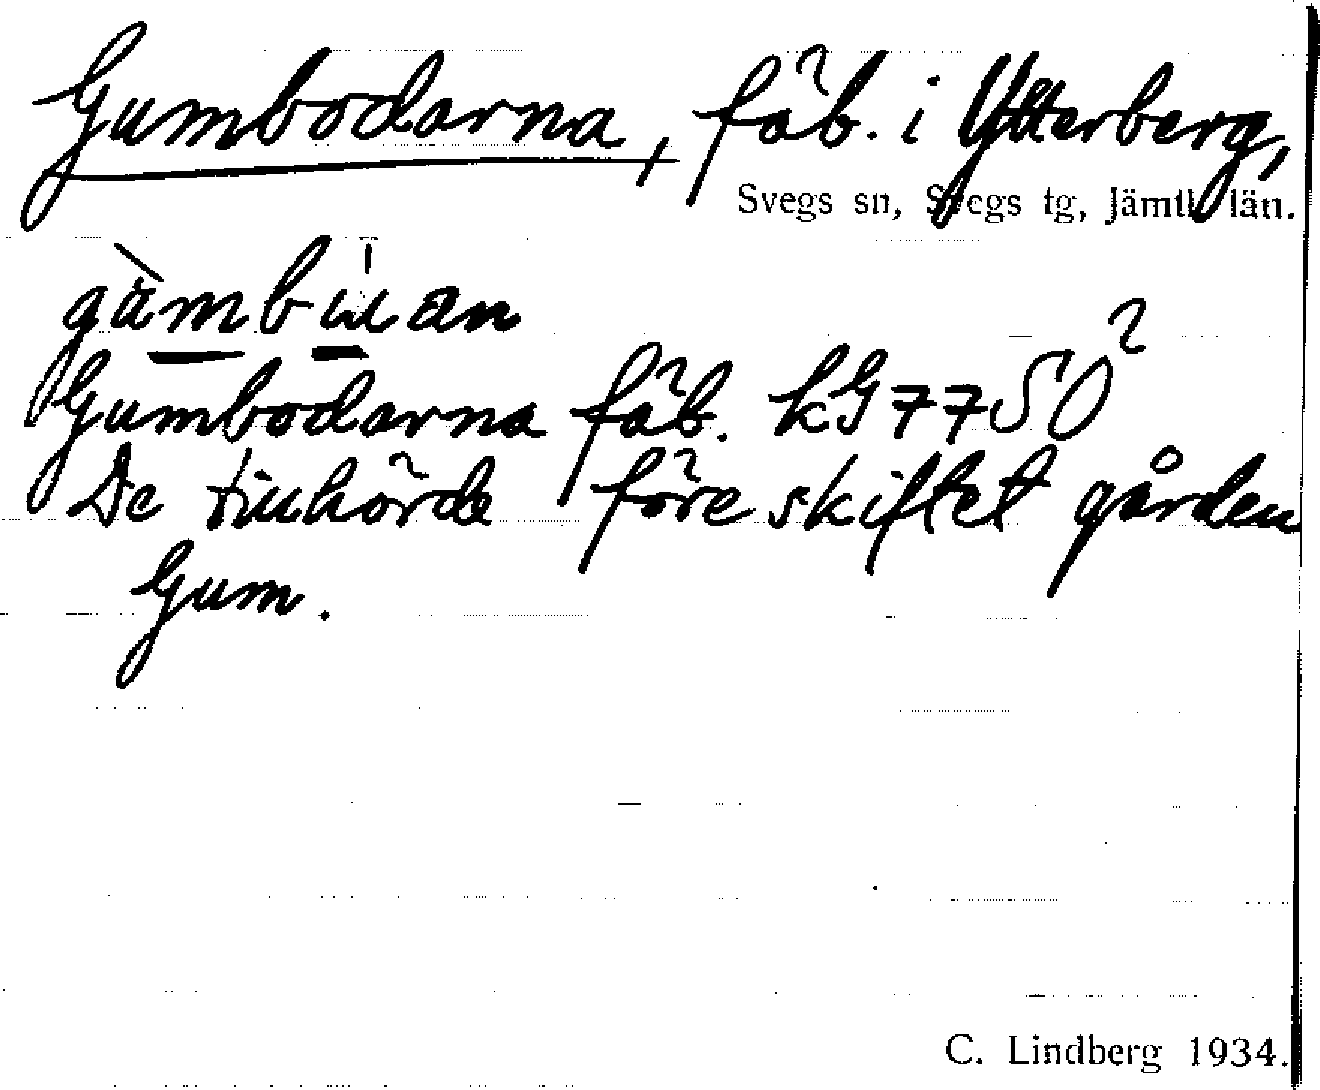 Gumbodarna, fäb. i Ytterberg,
Svegs sn, Svegs tg, Jämtl. län.
Gumbodarna fäb. kG77SO
De tillhörde före skiftet gården
Gum.
C. Lindberg 1934.